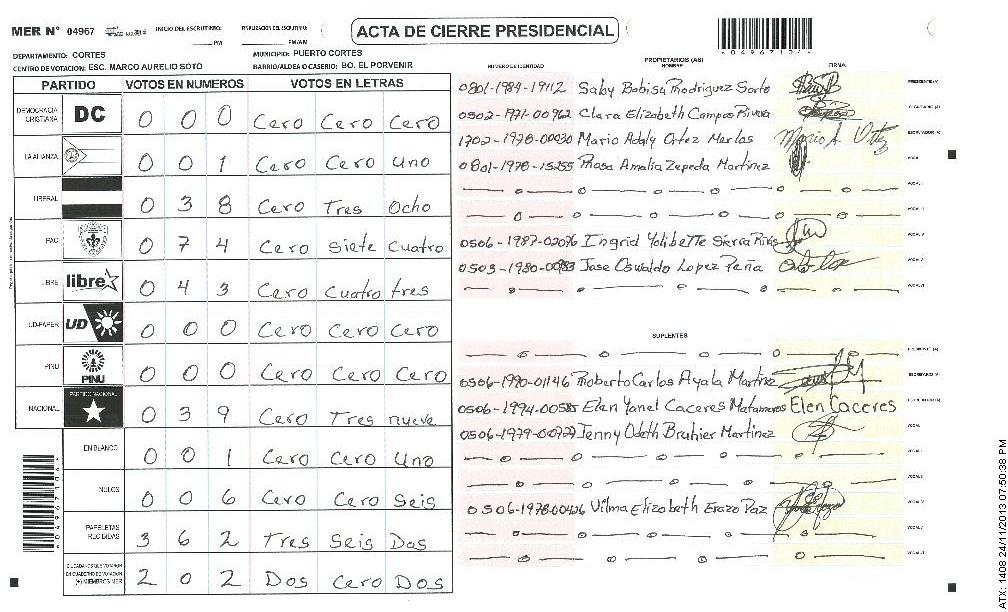 MER N° 04967 INICIO DEL ESCRUTINIO: ____ PM FINALIZACION DEL ESCRUTINIO: ____ PM/AM
ACTA DE CIERRE PRESIDENCIAL
DEPARTAMENTO: CORTES MUNICIPIO: PUERTO CORTES
CENTRO DE VOTACION: ESC. MARCO AURELIO SOTO BARRIO/ALDEA O CASERIO: BO. EL PORVENIR
PARTIDO VOTOS EN NUMEROS VOTOS EN LETRAS
DEMOCRACIA CRISTIANA DC 0 0 0 Cero Cero Cero
LA ALIANZA 0 0 1 Cero Cero Uno
LIBERAL 0 3 8 Cero Tres Ocho
PAC 0 7 4 Cero Siete Cuatro
LIBRE libre 0 4 3 Cero Cuatro tres
UD-FAPER UD 0 0 0 Cero Cero Cero
PINU PINU 0 0 0 Cero Cero Cero
NACIONAL PARTIDO NACIONAL 0 3 9 Cero Tres nueve
EN BLANCO 0 0 1 Cero Cero Uno
NULOS 0 0 6 Cero Cero Seis
PAPELETAS RECIBIDAS 3 6 2 Tres Seis Dos
CIUDADANOS QUE VOTARON EN CUADERNO DE VOTACION (+) MIEMBROS MER 2 0 2 Dos Cero Dos
*04967104*
PROPIETARIOS (AS)
NUMERO DE IDENTIDAD NOMBRE FIRMA
0801-1984-19112 Saby Bobisa Rodriguez Sorto
0502-1971-00962 Clara Elizabeth Campos Rivera
1702-1978-00030 Mario Adaly Ortez Merlos Mario A. Ortez
0801-1978-15255 Rosa Amalia Zepeda Martinez
0506-1987-02076 Ingrid Yolibette Sierra Rivas
0503-1980-00983 Jose Oswaldo Lopez Peña
SUPLENTES
0506-1990-01146 Roberto Carlos Ayala Martinez
0506-1994-00585 Elen Yanel Caceres Matamoros Elen Caceres
0506-1979-00727 Jenny Odeth Bruhier Martinez
0506-1978-00426 Vilma Elizabeth Erazo Paz
ATX: 1408 24/11/2013 07:50:38 PM